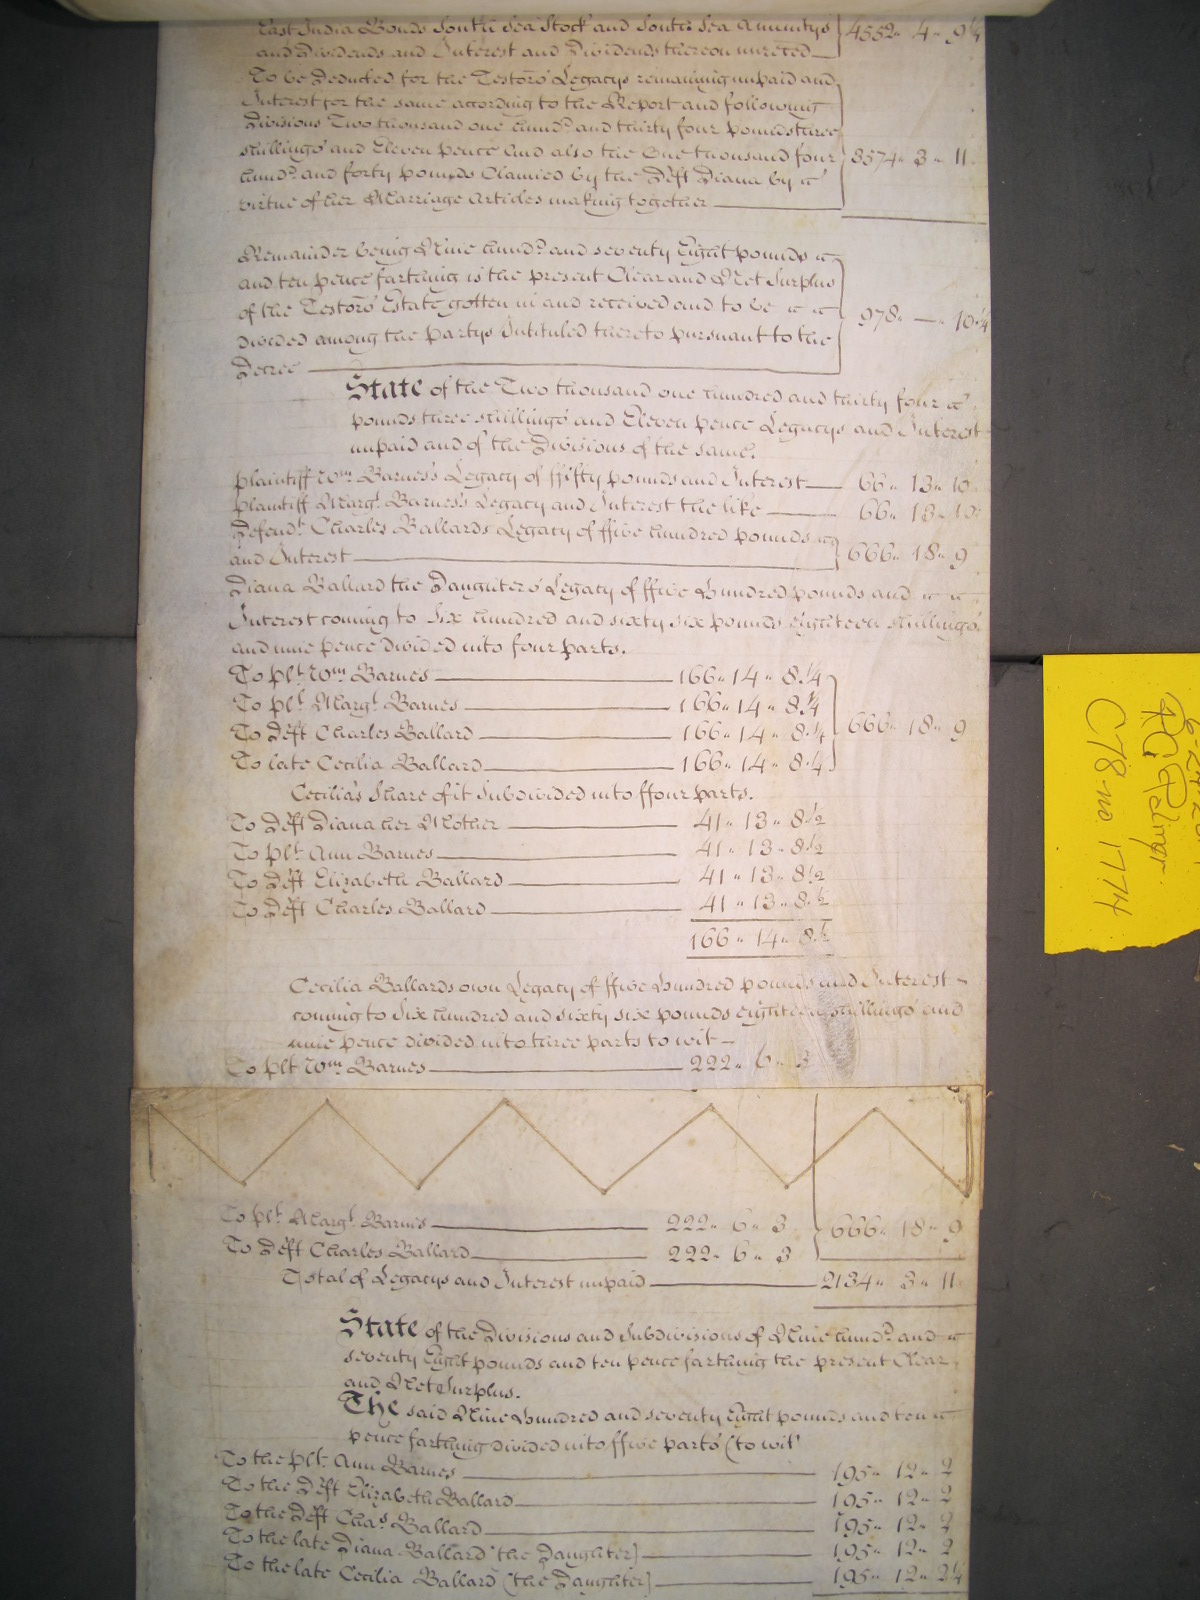 East India Bonds South Sea Stock and South Sea Annuitys 4552 „ 4 „ 9 ¼
and Dividends and Interest and Dividends thereon unreced
To be Deducted for the Testors Legacys remaining unpaid and
Interest for the same according to the Report and following
Divisions Two thousand one hund.d and thirty four pounds three
shillings and Eleven pence And also the One thousand four 3574 „ 3 „ 11
hund.d and forty pounds Claimed by the Deft Diana by
virtue of her Marriage Articles making together
Remainder being Nine hund.d and seventy Eight pounds
and ten pence farthing is the present Clear and Net Surplus
of the Testors Estate gotten in and received and to be
divided among the Partys Intituled thereto pursuant to the 978 „ — „ 10 ¼
Decree
State of the Two thousand one hundred and thirty four
pounds three shillings and Eleven pence Legacys and Interest
unpaid and of the Divisions of the same.
Plaintiff Wm Barnes's Legacy of ffifty pounds and Interest 66 „ 13 „ 10
Plaintiff Margt Barnes's Legacy and Interest the like 66 „ 13 „ 10
Defendt Charles Ballards Legacy of ffive hundred pounds
and Interest 666 „ 18 „ 9
Diana Ballard the Daughters Legacy of ffive Hundred pounds and
Interest coming to Six hundred and sixty six pounds eighteen shillings
and nine pence divided into four parts.
To plt Wm Barnes 166 „ 14 „ 8 ¼
To plt Margt Barnes 166 „ 14 „ 8 ¼
To Deft Charles Ballard 166 „ 14 „ 8 ¼ 666 „ 18 „ 9
To late Cecilia Ballard 166 „ 14 „ 8 ¼
Cecilia's Share of it Subdivided into ffour parts.
To Deft Diana her Mother 41 „ 13 „ 8 ½
To plt Ann Barnes 41 „ 13 „ 8 ½
To Deft Elizabeth Ballard 41 „ 13 „ 8 ½
To Deft Charles Ballard 41 „ 13 „ 8 ½
166 „ 14 „ 8 ½
Cecilia Ballards own Legacy of ffive Hundred pounds and Interest
coming to Six hundred and sixty six pounds eighteen shillings and
nine pence divided into three parts to wit
To plt Wm Barnes 222 „ 6 „ 3
To plt Margt Barnes 222 „ 6 „ 3 666 „ 18 „ 9
To Deft Charles Ballard 222 „ 6 „ 3
Total of Legacys and Interest unpaid 2134 „ 3 „ 11
State of the Divisions and Subdivisions of Nine hund.d and
seventy Eight pounds and ten pence farthing the present Clear
and Net Surplus.
The said Nine Hundred and seventy Eight pounds and ten
pence farthing divided into ffive parts (to wit
To the plt Ann Barnes 195 „ 12 „ 2
To the Deft Elizabeth Ballard 195 „ 12 „ 2
To the Deft Chas Ballard 195 „ 12 „ 2
To the late Diana Ballard (the Daughter) 195 „ 12 „ 2
To the late Cecilia Ballard (the Daughter) 195 „ 12 „ 2 ¼
C78 no. 1774